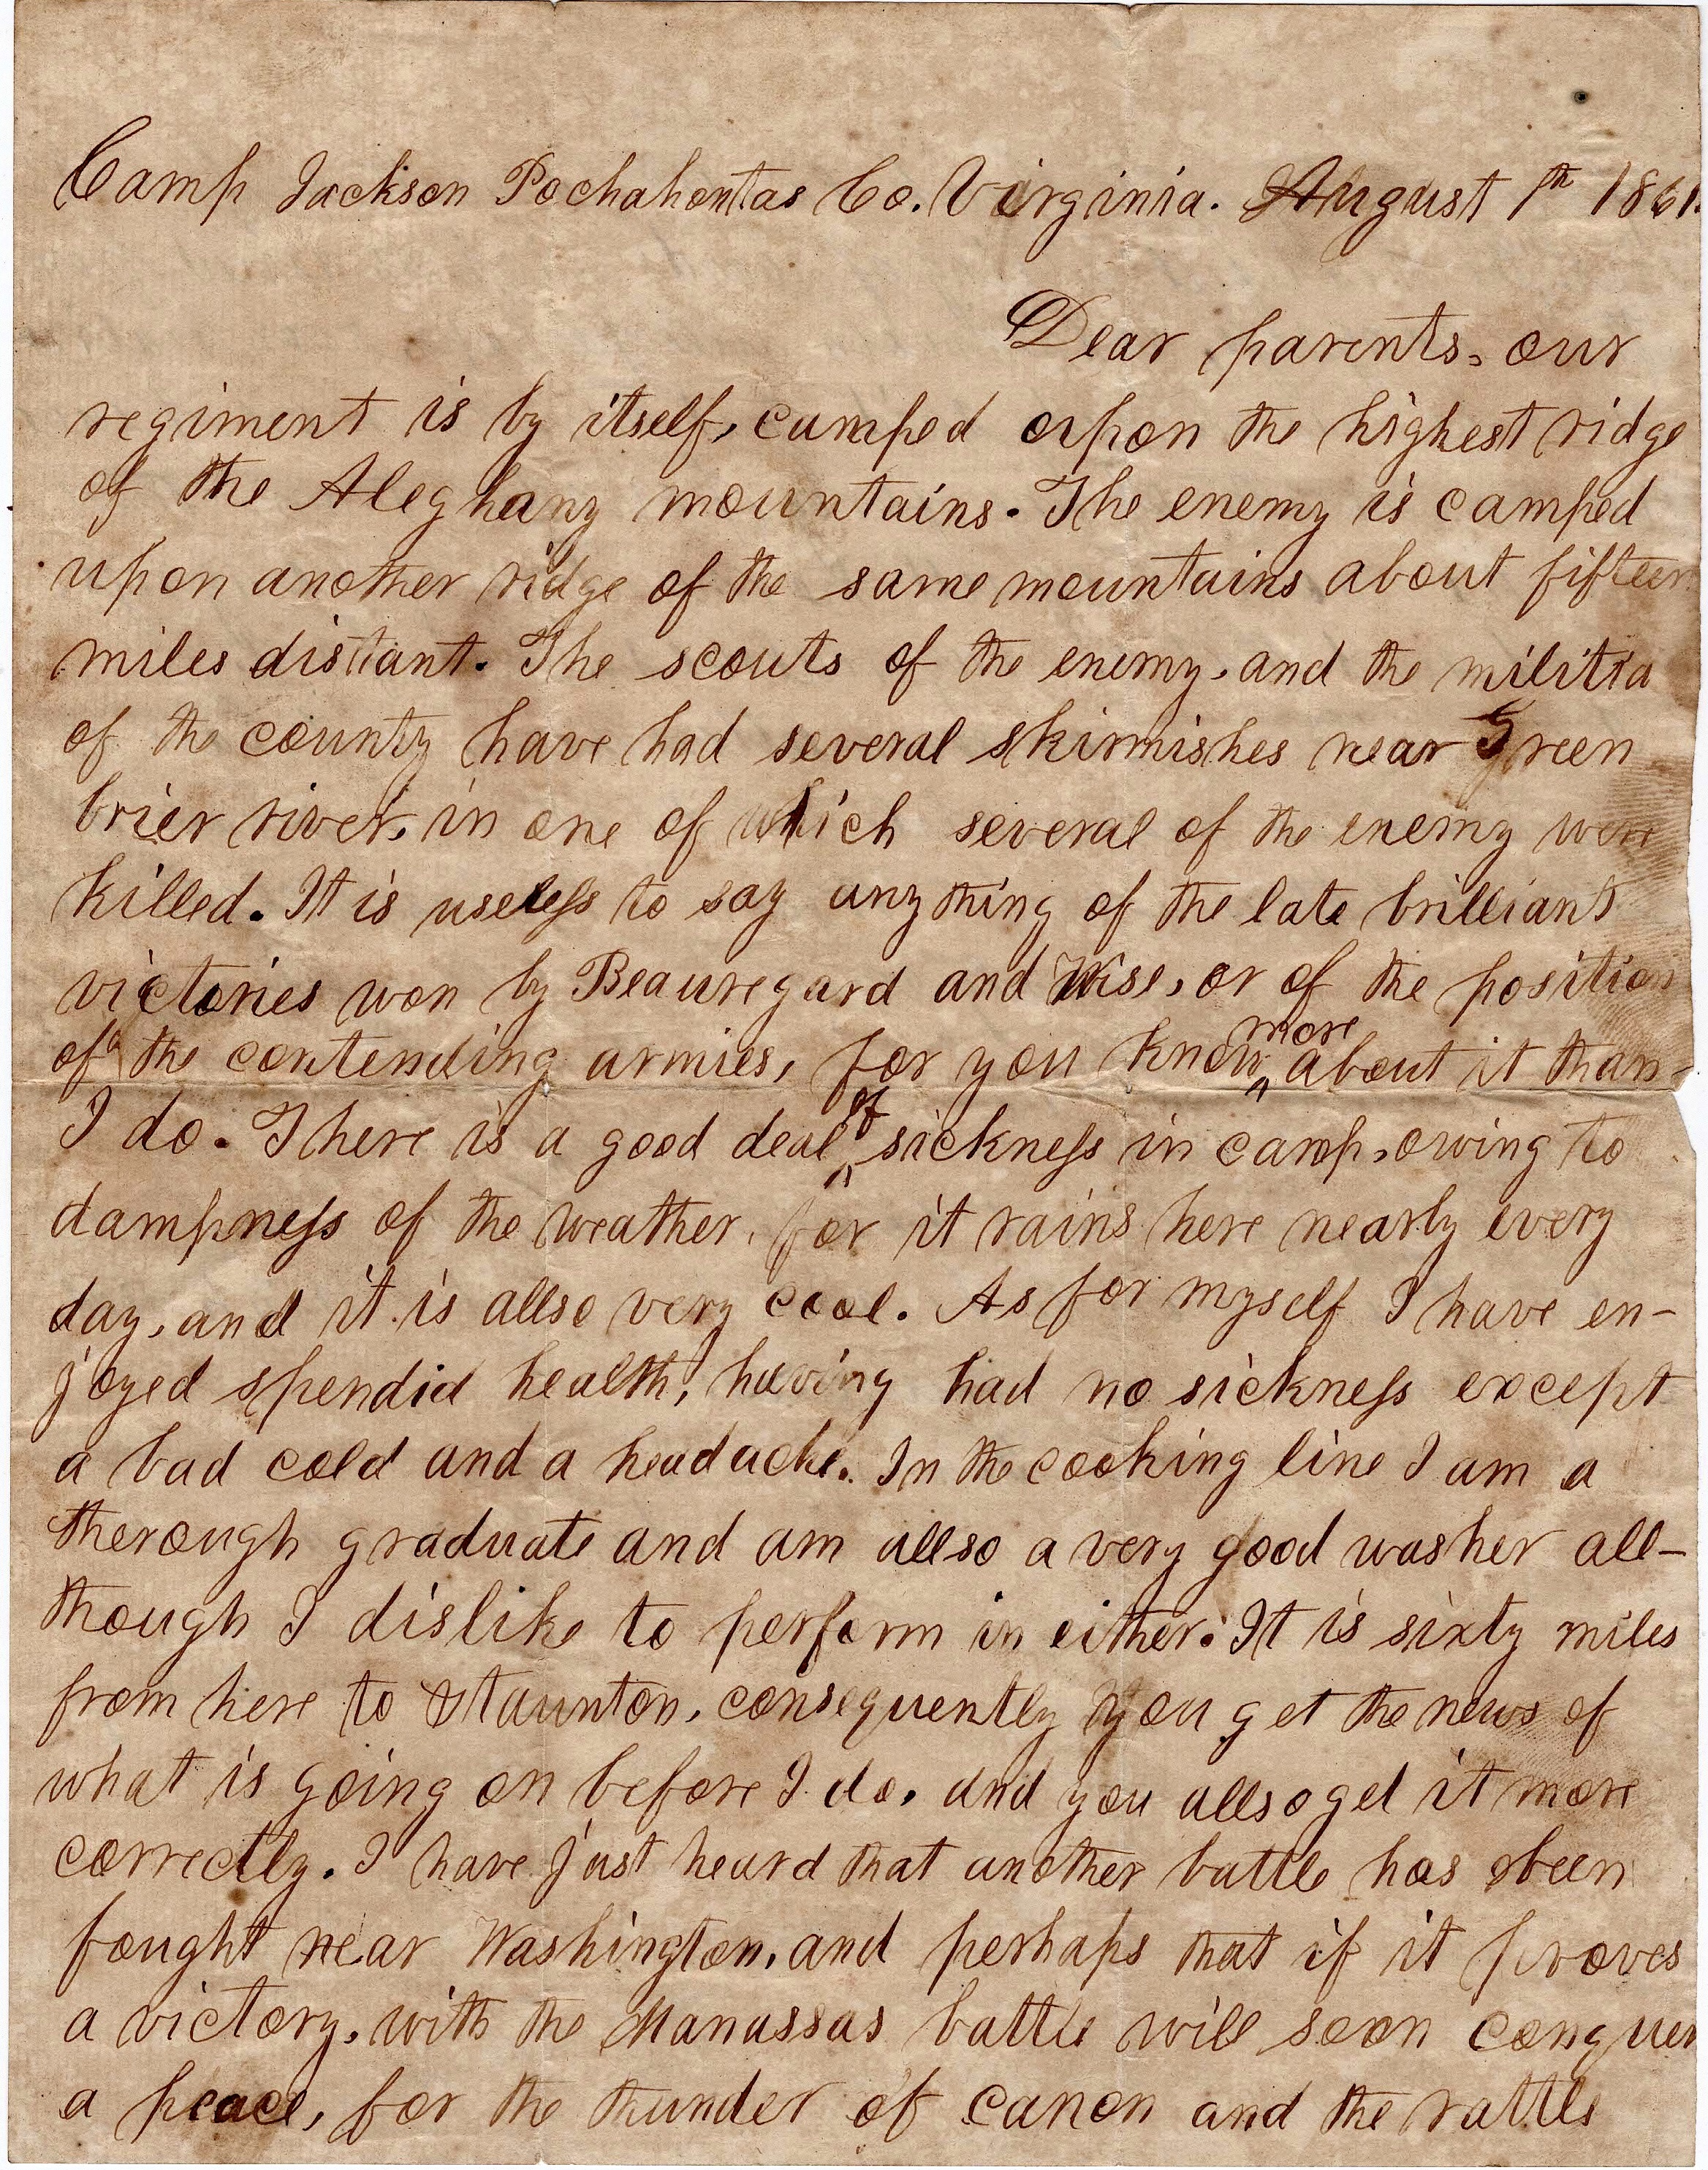 Camp Jackson Pochahontas Co. Virginia. August 1th 1861.
Dear parents, our
regiment is by itself, camped upon the highest ridge
of the Aleghany mountains. The enemy is camped
upon another ridge of the same mountains about fifteen
miles distant. The scouts of the enemy, and the militia
of the county have had several skirmishes near Green
brier river, in one of which several of the enemy were
killed. It is useless to say anything of the late brilliant
victories won by Beauregard and Wise, or of the position
of the contending armies, for you know more about it than
I do. There is a good deal of sickness in camp, owing to
dampness of the weather, for it rains here nearly every
day, and it is allso very cool. As for myself I have en-
joyed spendid health, having had no sickness except
a bad cold and a headache. In the cooking line I am a
therough graduate and am allso a very good washer all-
though I dislike to perform in either. It is sixty miles
from here to Staunton, consequently you get the news of
what is going on before I do, and you allso get it more
correctly. I have just heard that another battle has been
fought near Washington, and perhaps that if it proves
a victory, with the Manassas battle will soon conquer
a peace, for the thunder of canon and the rattle